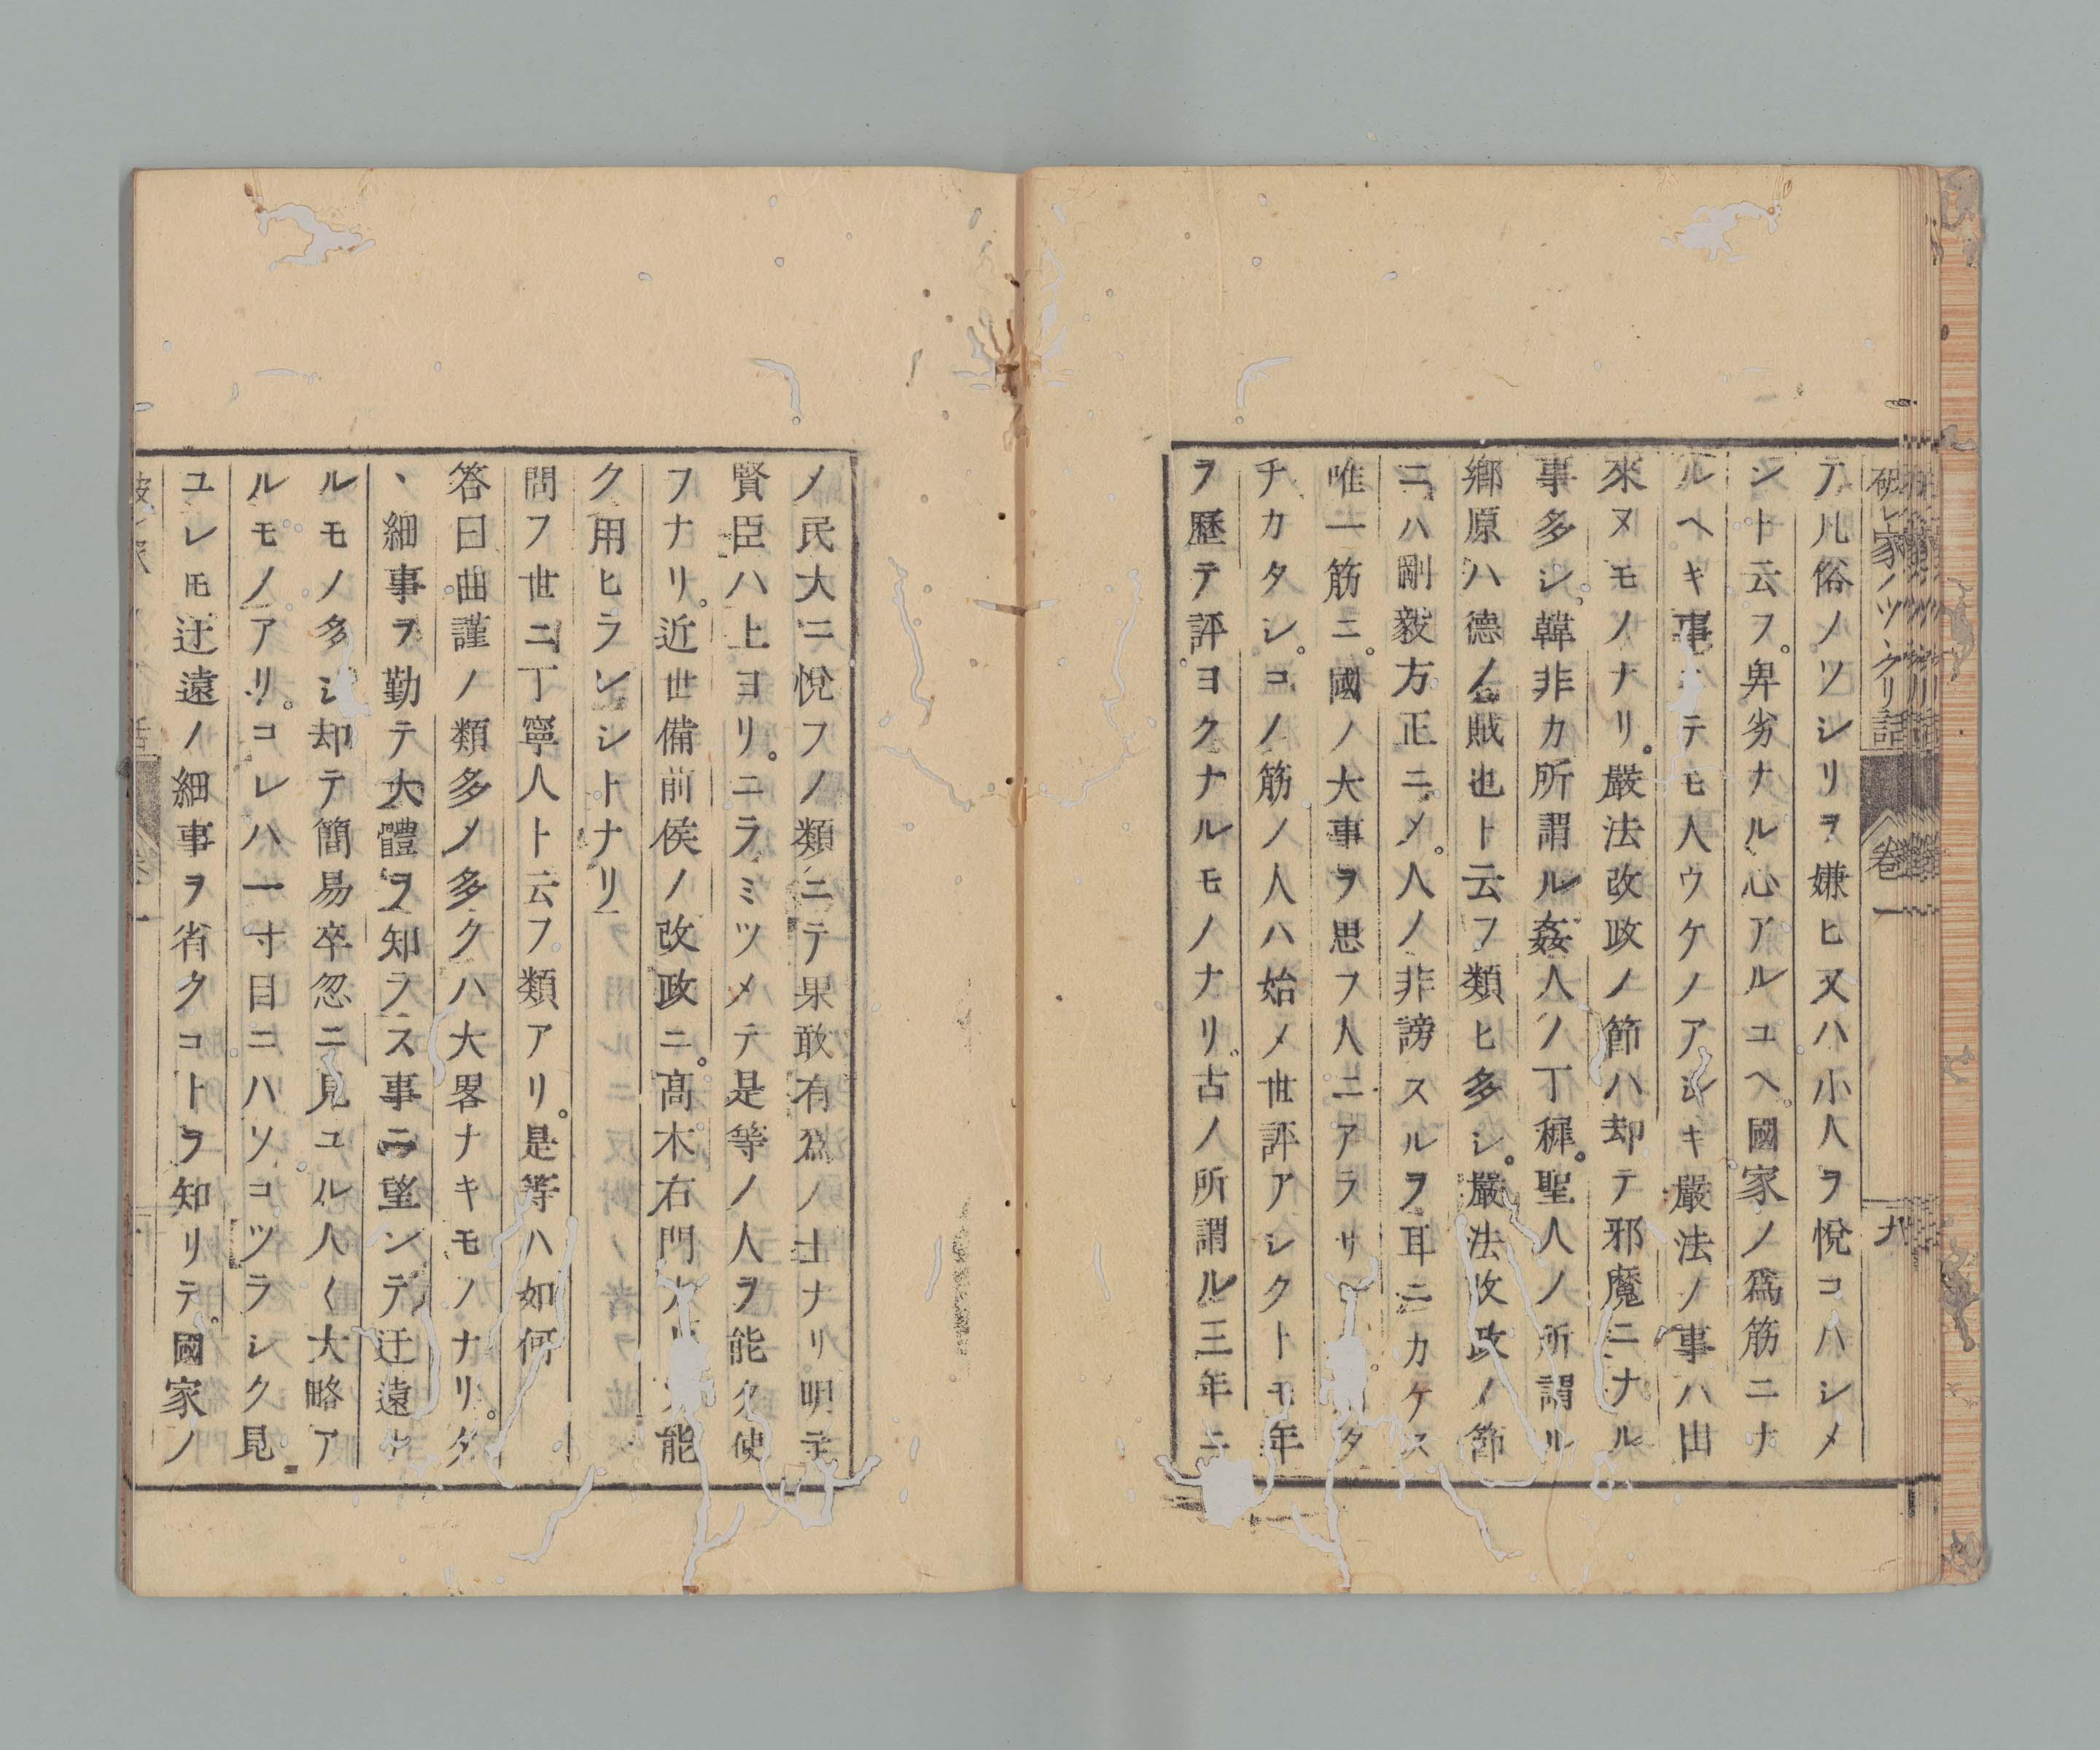 破レ家ノツヽクリ話 卷一 九
テ凡俗ノソシリヲ嫌ヒ又ハ小人ヲ悅コハシメ
ント云フ。卑劣ナル心アルユヘ。國家ノ爲筋ニナ
ルヘキ事ニテモ人ウケノアシキ嚴法ノ事ハ出
來ヌモノナリ。嚴法改政ノ節ハ却テ邪魔ニナル
事多シ。韓非カ所謂ル姦人ノ丁穉。聖人ノ所謂ル
鄕原ハ德ノ賊也ト云フ類ヒ多シ。嚴法改政ノ節
ニハ剛毅方正ニメ。人ノ非謗スルヲ耳ニカケス
唯一筋ニ。國ノ大事ヲ思フ人ニアラサ タ
チカタシ。コノ筋ノ人ハ始メ世評アシクトモ年
ヲ歷テ評ヨクナルモノナリ。古ノ所謂ル三年ニ
ノ民大ニ悅フノ類ニテ果敢有爲ノ士ナリ唄テ
賢臣ハ上ヨリ。ニラミツメテ是等ノ人ヲ能ク使
フナリ。近世備前侯ノ改政ニ。髙木右門 能
ク用ヒラレシトナリ
問フ世ニ丁寧人ト云フ類アリ。是等ハ如何
答曰曲謹ノ類多ノ多クハ大畧ナキモノナリ。タ
丶細事ヲ勤テ大體ヲ知ラス事ニ望ンテ迂遠ナ
ルモノ多シ却テ簡易卒忽ニ見ユル人〱大略ア
ルモノアリ。コレハ一寸目ニハソコツラシク見
ユレモ迂遠ノ細事ヲ省クコトヲ知リテ。國家ノ